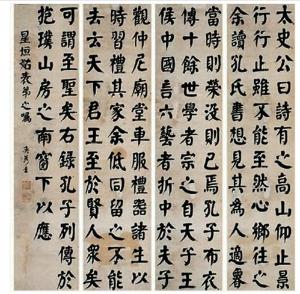 太史公曰詩有之高山仰止景
行行止雖不能至然心鄉往之
余讀孔氏書想見其為人適魯
當時則榮沒則已焉孔子布衣
傳十餘世學者宗之自天子王
侯中國言六藝者折中於夫子
觀仲尼廟堂車服禮器諸生以
時習禮其家余低回留之不能
去云天下君王至於賢人眾矣
可謂至聖矣右錄孔子列傳於
抱璞山房之南窗下以應
星垣姻表弟之囑